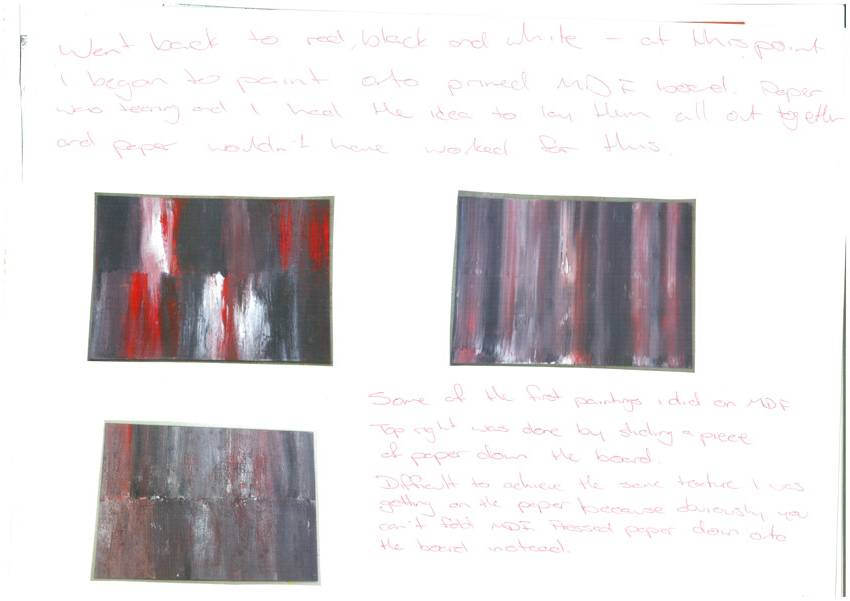 Went back to red, black and white - at this point
I began to paint onto primed MDF board. Paper
was tearing and I had the idea to lay them all out together
and paper wouldn't have worked for this.
Some of the first paintings i did on MDF
Top right was done by sliding a piece
of paper down the board.
Difficult to achieve the same texture I was
getting on the paper because obviously you
can't fold MDF. Pressed paper down onto
the board instead.